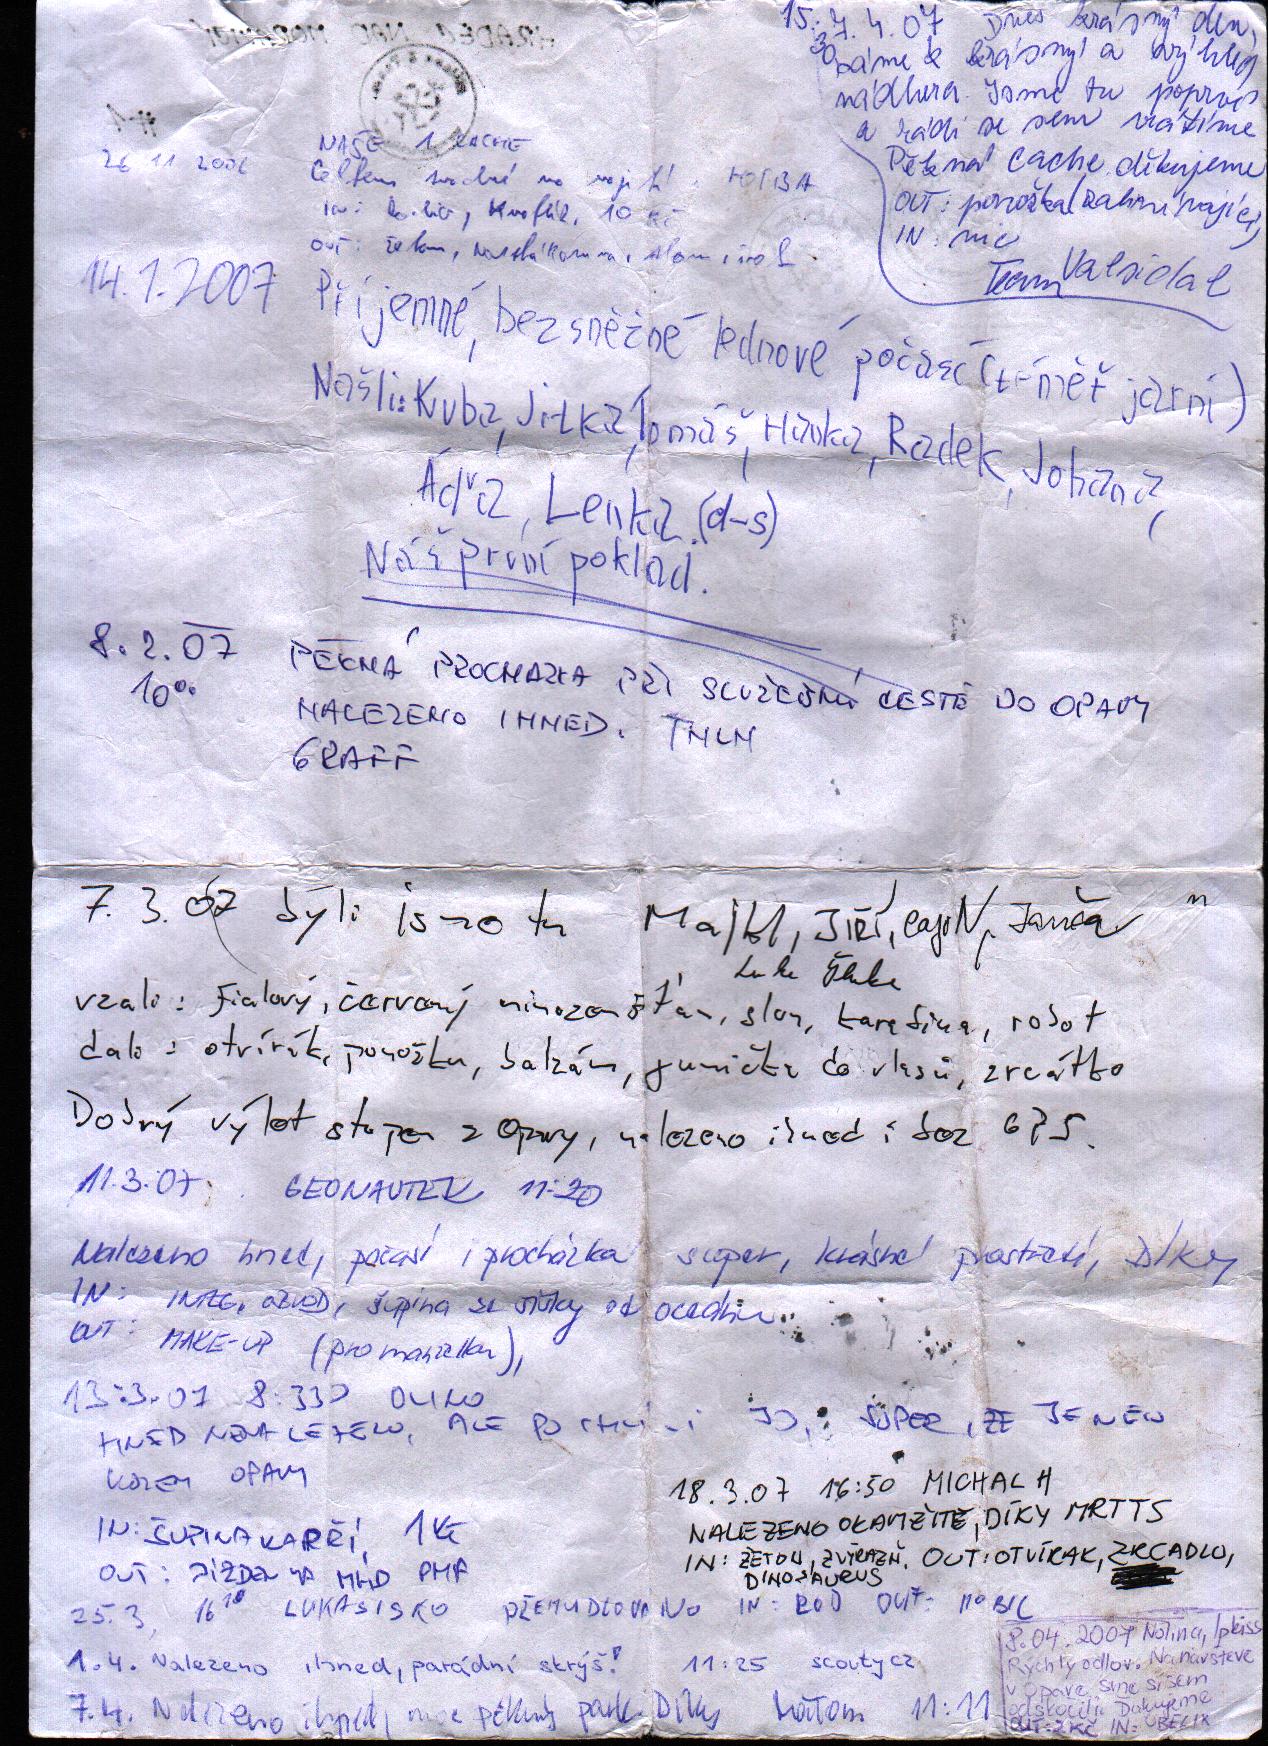 HRADEC NAD MORAVICÍ
15:30 7.4.07 Dnes krásný den,
máme krásný a výhled
nádhera. Jsme tu poprvé
a rádi se sem vrátíme
Pěkná cache děkujeme
OUT: ponožka (zahrívající)
IN: nic
Team Valsidal
#1
26 11 2006 NAŠE 1 KACHE
Celkem
IN: 10 Kč
OUT: žeton,
14.1.2007 Příjemné, bezsněžné lednové počasí (téměř jarní)
Našli: Kuba, Jitka, Tomáš, Hanka, Radek, Johana,
Áďa, Lenka (d-s)
Náš první poklad.
8.2.07 PĚKNÁ PROCHAZKA PŘI SLUŽEBNÍ CESTĚ DO OPAVY
10⁰⁰ NALEZENO IHNED. TNLN
GRAFF
7.3.07 byli jsme tu Majkl, Jiří, CagoN, Janča
vzali: Fialový, červený mimozemšťan, slon, karabina, robot
dali: otvírák, ponožku, balzám, gumička do vlasů, zrcátko
Dobrý výlet stopem z Opavy, nalezeno ihned i bez GPS.
11.3.07 GEONAUTEK 11:20
Nalezeno hned, počasí i procházka super, krásné prostředí, Díky
IN: INTEG. OBVOD, šupina ze od oceánu
OUT: MAKE-UP (pro manželku),
13.3.07 8:33 OLINO
HNED NENALEZENO, ALE PO CHVÍLI JO, SUPER, ŽE JE NEW
KOLEM OPAVY
IN: ŠUPINA KAPŘÍ, 1 Kč
OUT: JÍZDENKA MHD PHA
18.3.07 16:50 MICHAL H
NALEZENO OKAMŽITĚ, DÍKY MRTTS
IN: ŽETON, ZVÝRAZŇ. OUT: OTVÍRAK, ZRCADLO,
DINOSAURUS
25.3, 16¹⁰ LUKASISKO IN: BOD OUT:
1.4. Nalezeno ihned, parádní skrýš! 11:25 scoutycz
7.4. Nalezeno ihned, moc pěkný park. Díky 11:11
8.04.2007
Rýchly odlov. Na návšteve
v Opave sme si sem
odskočili. Ďakujeme
OUT: 2 Kč IN: BELIX